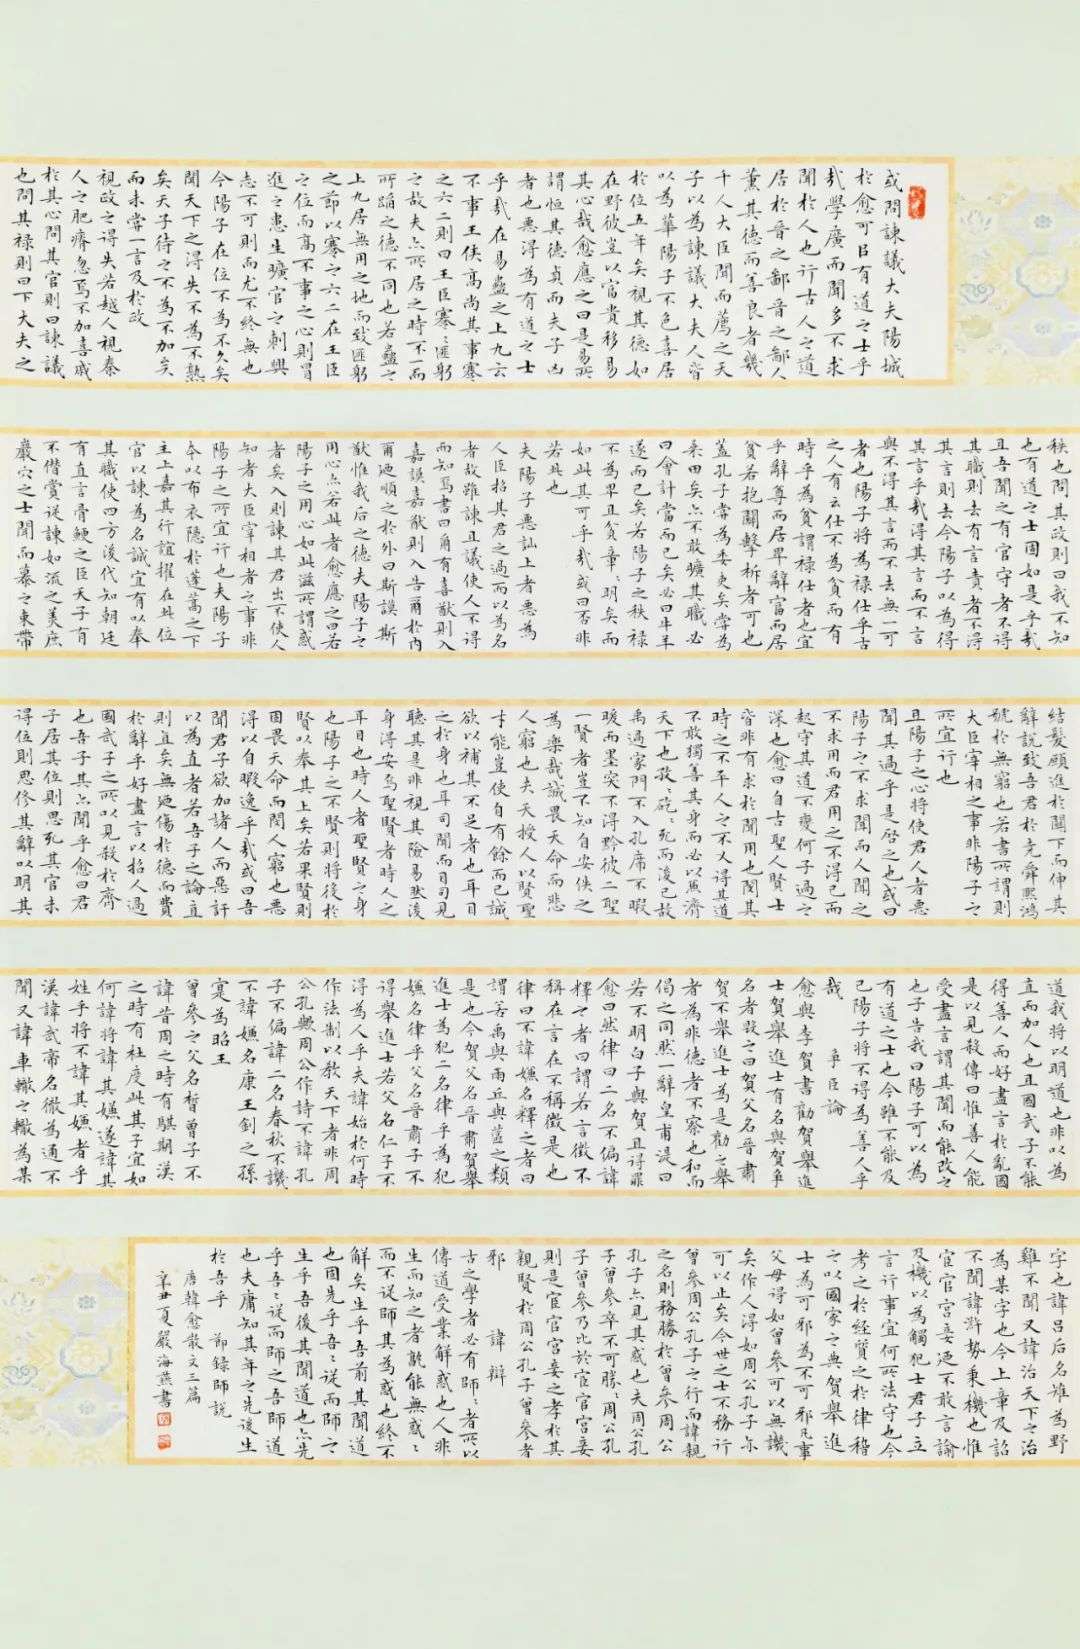 或問諫議大夫陽城
於愈可㠯有道之士乎
哉學廣而聞多不求
聞於人也行古人之道
居於晉之鄙晉之鄙人
薰其德而善良者幾
千人大臣聞而薦之天
子以為諫議大夫人皆
以為華陽子不色喜居
於位五年矣視其德如
在野彼豈以富貴移易
其心哉愈應之曰是易所
謂恒其德貞而夫子凶
者也惡得為有道之士
乎哉在易蠱之上九云
不事王侯高尚其事蹇
之六二則曰王臣蹇〻匪躬
之故夫亦所居之時不一而
所蹈之德不同也若蠱之
上九居無用之地而致匪躬
之節以蹇之六二在王臣
之位而高不事之心則冒
進之患生曠官之刺興
志不可則而尤不終無也
今陽子在位不為不久矣
聞天下之得失不為不熟
矣天子待之不為不加矣
而未嘗一言及於政
視政之得失若越人視秦
人之肥瘠忽焉不加喜戚
於其心問其官則曰諫議
也問其祿則曰下大夫之
秩也問其政則曰我不知
也有道之士固如是乎哉
且吾聞之有官守者不得
其職則去有言責者不得
其言則去今陽子以為得
其言乎哉得其言而不言
與不得其言而不去無一可
者也陽子將為祿仕乎古
之人有云仕不為貧而有
時乎為貧謂祿仕者也宜
乎辭尊而居卑辭富而居
貧若抱關擊柝者可也
蓋孔子嘗為委吏矣嘗為
乘田矣亦不敢曠其職必
曰會計當而已矣必曰牛羊
遂而已矣若陽子之秩祿
不為卑且貧章〻明矣而
如此其可乎哉或曰否非
若此也
夫陽子惡訕上者惡為
人臣招其君之過而以為名
者故雖諫且議使人不得
而知焉書曰爾有喜猷則入
嘉謨嘉猷則入告爾於內
爾迺順之於外曰斯謨斯
猷惟我后之德夫陽子之
用心亦若此者愈應之曰若
陽子之用心如此滋所謂惑
者矣入則諫其君出不使人
知者大臣宰相者之事非
陽子之所宜行也夫陽子
本以布衣隱於蓬蒿之下
主上嘉其行誼擢在此位
官以諫為名誠宜有以奉
其職使四方後代知朝廷
有直言骨鯁之臣天子有
不僭賞從諫如流之美庶
巖穴之士聞而慕之束帶
結髮願進於闕下而伸其
辭說致吾君於堯舜熙鴻
號於無窮也若書所謂則
大臣宰相之事非陽子之
所宜行也
且陽子之心將使君人者惡
聞其過乎是啟之也或曰
陽子之不求聞而人聞之
不求用而君用之不得已而
起守其道不變何子過之
深也愈曰自古聖人賢士
皆非有求於聞用也閔其
時之不平人之不乂得其道
不敢獨善其身而必以兼濟
天下也孜〻矻〻死而後已故
禹過家門不入孔席不暇
暖而墨突不得黔彼二聖
一賢者豈不知自安佚之
為樂哉誠畏天命而悲
人窮也夫天授人以賢聖
才能豈使自有餘而已誠
欲以補其不足者也耳目
之於身也耳司聞而目司見
聽其是非視其險易然後
身得安焉聖賢者時人之
耳目也時人者聖賢之身
也陽子之不賢則將役於
賢以奉其上矣若果賢則
固畏天命而閔人窮也惡
得以自暇逸乎哉或曰吾
聞君子欲加諸人而惡訐
以為直者若吾子之論直
則直矣無迺傷於德而費
於辭乎好盡言以招人過
國武子之所以見殺於齊
也吾子其亦聞乎愈曰君
子居其位則思死其官未
得位則思修其辭以明其
道我將以明道也非以為
直而加人也且國武子不能
得善人而好盡言於亂國
是以見殺傳曰惟善人能
受盡言謂其聞而能改之
也子告我曰陽子可以為
有道之士也今雖不能及
已陽子將不得為善人乎
哉 爭臣論
愈與李賀書勸賀舉進
士賀舉進士有名與賀爭
名者毀之曰賀父名晉肅
賀不舉進士為是勸之舉
者為非德者不察也和而
倡之同然一辭皇甫湜曰
若不明白子與賀且得罪
愈曰然律曰二名不偏諱
釋之者曰謂若言徵不
稱在言在不稱徵是也
律曰不諱嫌名釋之者曰
謂若禹與雨丘與蓲之類
是也今賀父名晉肅賀舉
進士為犯二名律乎為犯
嫌名律乎父名晉肅子不
得舉進士若父名仁子不
得為人乎夫諱始於何時
作法制以教天下者非周
公孔歟周公作詩不諱孔
子不偏諱二名春秋不譏
不諱嫌名康王釗之孫
寔為昭王
曾參之父名皙曾子不
諱昔周之時有騏期漢
之時有杜度此其子宜如
何諱將諱其嫌遂諱其
姓乎將不諱其嫌者乎
漢諱武帝名徹為通不
聞又諱車轍之轍為某
字也諱呂后名雉為野
雞不聞又諱治天下之治
為某字也今上章及詔
不聞諱滸勢秉機也惟
宦官宮妾迺不敢言諭
及機以為觸犯士君子立
言行事宜何所法守也今
考之於經質之於律稽
之以國家之典賀舉進
士為可邪為不可邪凡事
父母得如曾參可以無譏
矣作人得如周公孔子亦
可以止矣今世之士不務行
曾參周公孔子之行而諱親
之名則務勝於曾參周公
孔子亦見其惑也夫周公孔
子曾參卒不可勝〻周公孔
子曾參乃比於宦官宮妾
則是宦官宮妾之孝於其
親賢於周公孔子曾參者
邪 諱辯
古之學者必有師〻者所以
傳道受業解惑也人非
生而知之者孰能無惑〻
而不從師其為惑也終不
解矣生乎吾前其聞道
也固先乎吾〻從而師之
生乎吾後其聞道也亦先
乎吾〻從而師之吾師道
也夫庸知其年之先後生
於吾乎 節錄師說
唐韓愈散文三篇
辛丑夏嚴海燕書